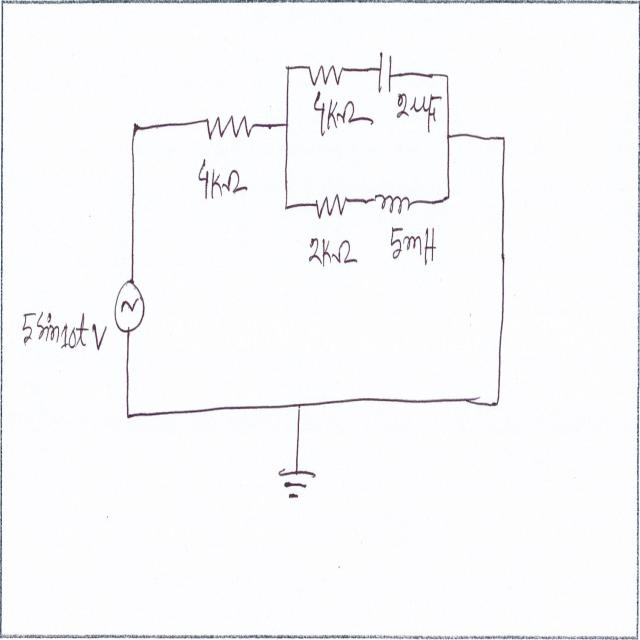 4KΩ
2uF
4KΩ
2KΩ
5mH
5Sin10t V